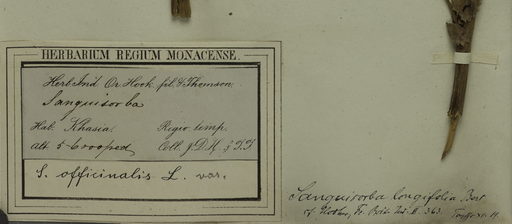 HERBARIUM REGIUM MONACENSE.
Herb. Ind. Or. Hook. fil. & Thomson.
Sanguisorba
Hab. Khasia. Regio temp.
alt. 5-6000 ped. Coll. J.D.H. & T.T.
S. officinalis L. var.
Sanguisorba longifolia, Bert
Fl. Brit. Ind. II. 363.